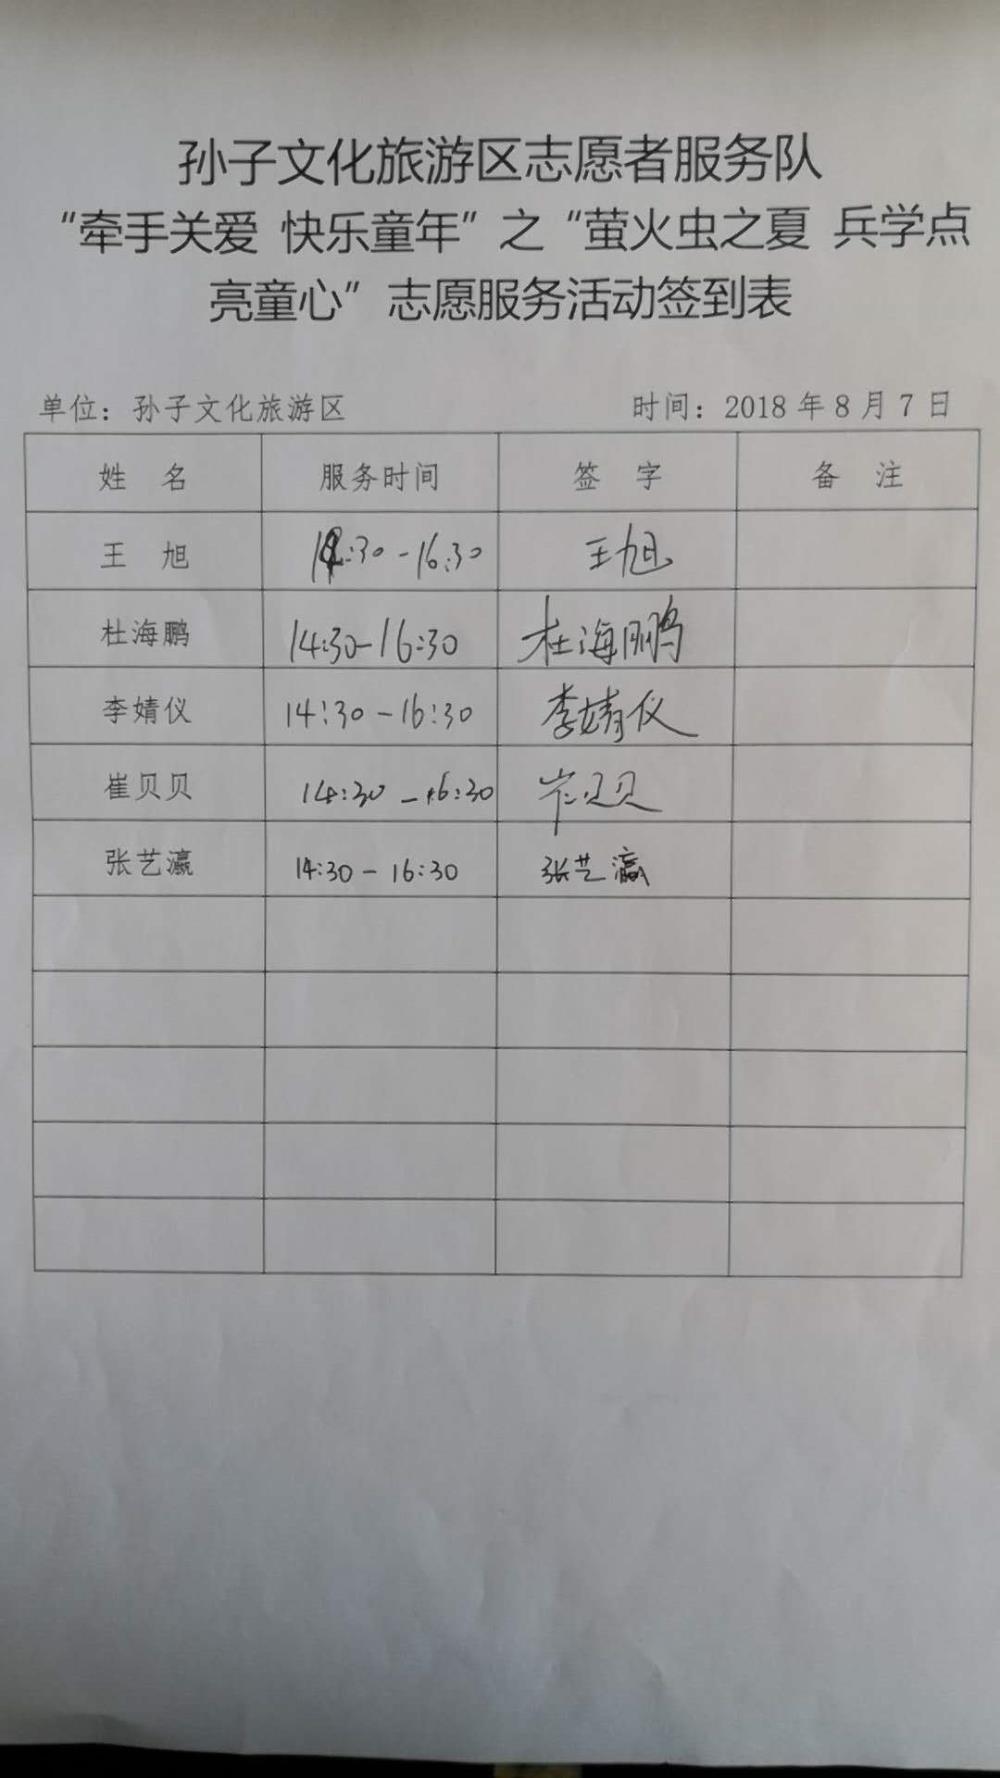 孙子文化旅游区志愿者服务队
“牵手关爱 快乐童年”之“萤火虫之夏 兵学点
亮童心”志愿服务活动签到表
单位：孙子文化旅游区 时间：2018年8月7日
姓 名 服务时间 签 字 备 注
王 旭 14:30-16:30 王旭
杜海鹏 14:30-16:30 杜海鹏
李婧仪 14:30-16:30 李婧仪
崔贝贝 14:30-16:30 崔贝贝
张艺瀛 14:30-16:30 张艺瀛